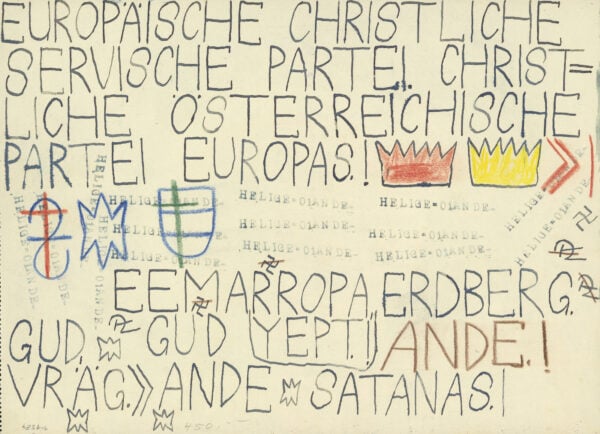 EUROPÄISCHE CHRISTLICHE
SERVISCHE PARTEI. CHRIST=
LICHE ÖSTERREICHISCHE
PARTEI EUROPAS.
HELIGE=OIANDE-
HELIGE=OIANDE-
HELIGE=OIANDE-
HELIGE=OIANDE-
HELIGE=OIANDE-
HELIGE=OIANDE-
HELIGE=OIANDE-
HELIGE=OIANDE-
HELIGE=OIANDE-
EEMARROPA, ERDBERG.
GUD, GUD YEPT. ANDE.!
VRÄG.» ANDE SATANAS.!
450